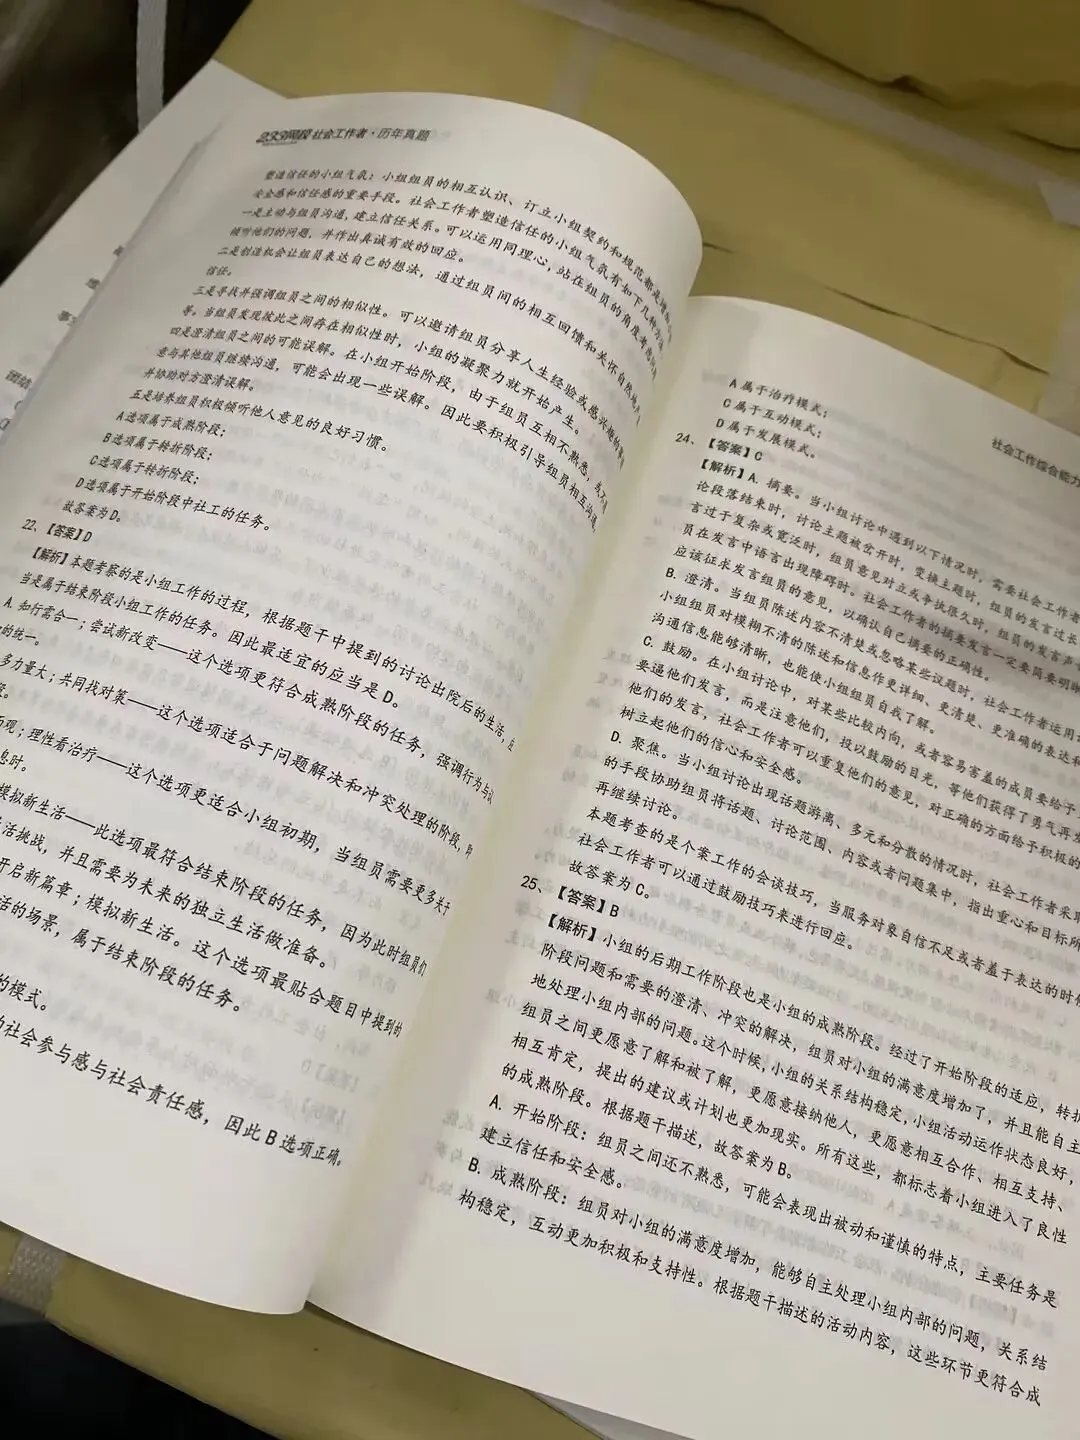 233网校 社会工作者·历年真题
塑造信任的小组气氛：小组组员的相互认识、订立小组契约和规范都是增
安全感和信任感的重要手段。社会工作者塑造信任的小组气氛有如下几种方法
一是主动与组员沟通，建立信任关系。可以运用同理心，站在组员的角度考虑问
倾听他们的问题，并作出真诚有效的回应。
二是创造机会让组员表达自己的想法，通过组员间的相互回馈和关怀自然地
信任。
三是寻找并强调组员之间的相似性。可以邀请组员分享人生经验或感兴趣的
等。当组员发现彼此之间存在相似性时，小组的凝聚力就开始产生。
四是澄清组员之间的可能误解。在小组开始阶段，由于组员互相不熟悉，或不
意与其他组员继续沟通，可能会出现一些误解。因此要积极引导组员相互沟通，
并协助对方澄清误解。
五是培养组员积极倾听他人意见的良好习惯。
A选项属于成熟阶段；
B选项属于转折阶段；
C选项属于转折阶段；
D选项属于开始阶段中社工的任务。
故答案为D。
22、【答案】D
【解析】本题考察的是小组工作的过程，根据题干中提到的讨论出院后的生活，应
当是属于结束阶段小组工作的任务。因此最适宜的应当是D。
A. 知行需合一；尝试新改变——这个选项更符合成熟阶段的任务，强调行为与认
的统一。
多力量大；共同找对策——这个选项适合于问题解决和冲突处理的阶段，即
现；理性看治疗——这个选项更适合小组初期，当组员需要更多关于
息时。
模拟新生活——此选项最符合结束阶段的任务，因为此时组员们
活挑战，并且需要为未来的独立生活做准备。
开启新篇章；模拟新生活。这个选项最贴合题目中提到的
活的场景，属于结束阶段的任务。
的模式。
社会参与感与社会责任感，因此B选项正确。
社会工作综合能力
A属于治疗模式；
C属于互动模式；
D属于发展模式。
24、【答案】C
【解析】A. 摘要。当小组讨论中遇到以下情况时，需要社会工作者
论段落结束时，讨论主题被岔开时，变换主题时，组员的发言过长
言过于复杂或宽泛时，组员意见对立或争执很久时，组员的发言声
员在发言中语言出现障碍时。社会工作者的摘要发言一定要简要明晰
应该征求发言组员的意见，以确认自己摘要的正确性。
B. 澄清。当组员陈述内容不清楚或忽略某些议题时，社会工作者运用
小组组员对模糊不清的陈述和信息作更详细、更清楚、更准确的表达和
沟通信息能够清晰，也能使小组组员自我了解。
C. 鼓励。在小组讨论中，对某些比较内向，或者容易害羞的成员要给予
要逼他们发言，而是注意他们，投以鼓励的目光，等他们获得了勇气再发
他们的发言，社会工作者可以重复他们的意见，对正确的方面给予积极的
树立起他们的信心和安全感。
D. 聚焦。当小组讨论出现话题游离、多元和分散的情况时，社会工作者采取
的手段协助组员将话题、讨论范围、内容或者问题集中，指出重心和目标所
再继续讨论。
本题考查的是个案工作的会谈技巧，当服务对象自信不足或者羞于表达的时候
社会工作者可以通过鼓励技巧来进行回应。
故答案为C。
25、【答案】B
【解析】小组的后期工作阶段也是小组的成熟阶段。经过了开始阶段的适应，转折
阶段问题和需要的澄清、冲突的解决，组员对小组的满意度增加了，并且能自主
地处理小组内部的问题。这个时候，小组的关系结构稳定，小组活动运作状态良好，
组员之间更愿意了解和被了解，更愿意接纳他人，更愿意相互合作、相互支持、
相互肯定，提出的建议或计划也更加现实。所有这些，都标志着小组进入了良性
的成熟阶段。根据题干描述，故答案为B。
A. 开始阶段：组员之间还不熟悉，可能会表现出被动和谨慎的特点，主要任务是
建立信任和安全感。
B. 成熟阶段：组员对小组的满意度增加，能够自主处理小组内部的问题，关系结
构稳定，互动更加积极和支持性。根据题干描述的活动内容，这些环节更符合成